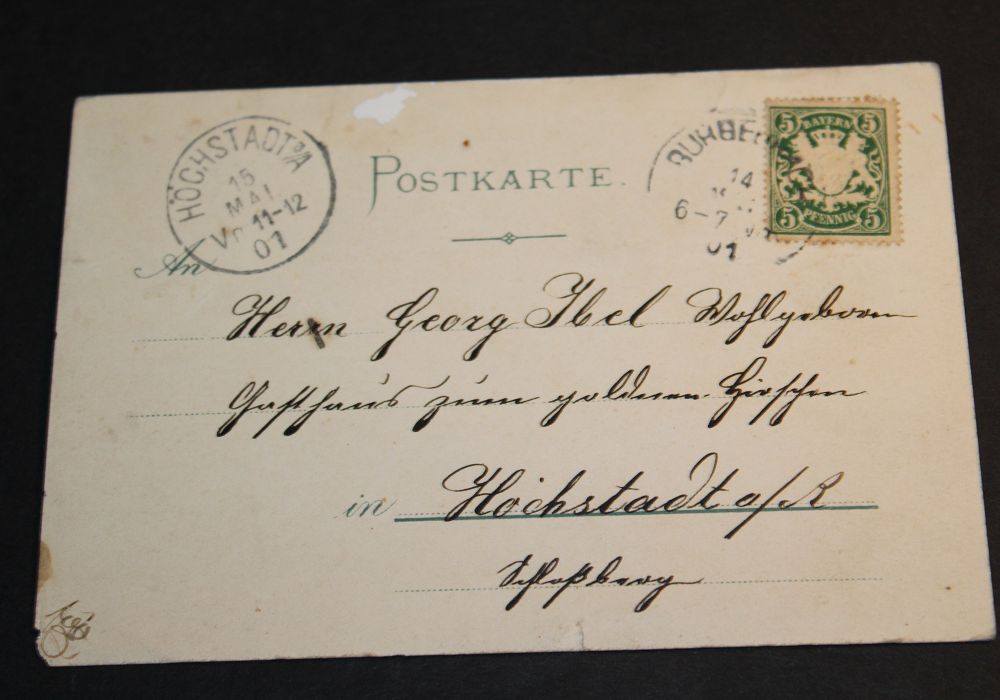 HÖCHSTADT a/A
15
MAI
VM 11-12
01
POSTKARTE.
14
6-7
01
5 BAYERN 5
5 PFENNIG 5
An
Herrn Georg Ibel Wohlgeboren
Gasthaus zum goldnen Hirschen
in Höchstadt a/A
Schloßberg